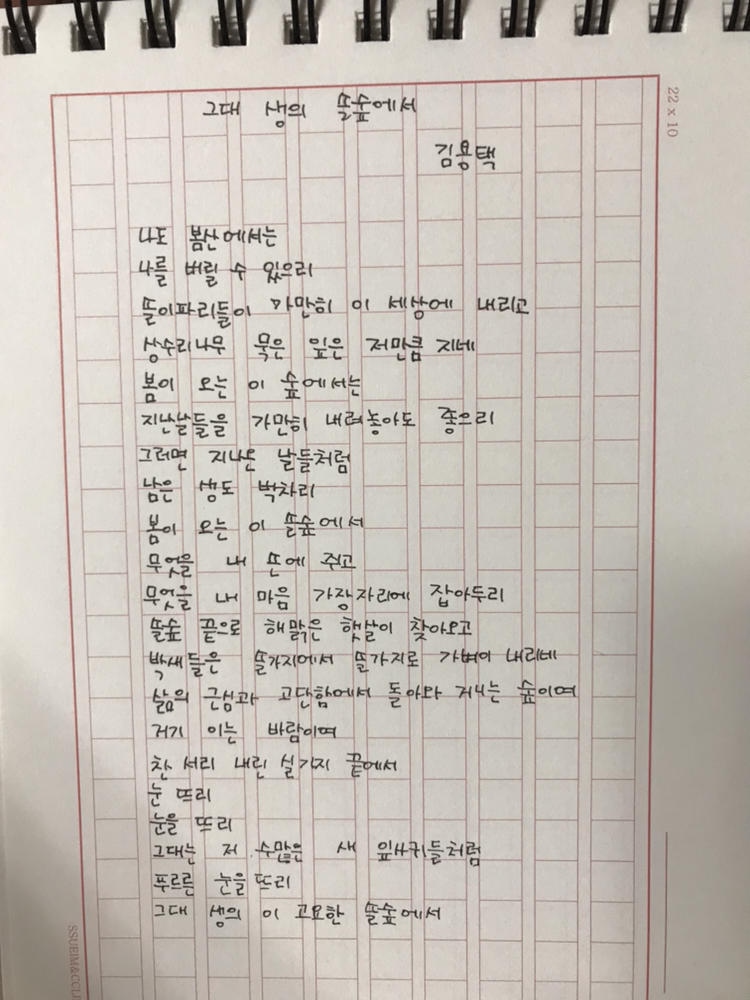 22 x 10
그대 생의 솔숲에서
김용택
나도 봄산에서는
나를 버릴 수 있으리
솔이파리들이 가만히 이 세상에 내리고
상수리나무 묵은 잎은 저만큼 지네
봄이 오는 이 숲에서는
지난날들을 가만히 내려놓아도 좋으리
그러면 지나온 날들처럼
남은 생도 벅차리
봄이 오는 이 솔숲에서
무엇을 내 손에 쥐고
무엇을 내 마음 가장자리에 잡아두리
솔숲 끝으로 해맑은 햇살이 찾아오고
박새들은 솔가지에서 솔가지로 가벼이 내리네
삶의 근심과 고단함에서 돌아와 거니는 숲이여
거기 이는 바람이여
찬 서리 내린 실가지 끝에서
눈 뜨리
눈을 뜨리
그대는 저 수많은 새 잎사귀들처럼
푸르른 눈을 뜨리
그대 생의 이 고요한 솔숲에서